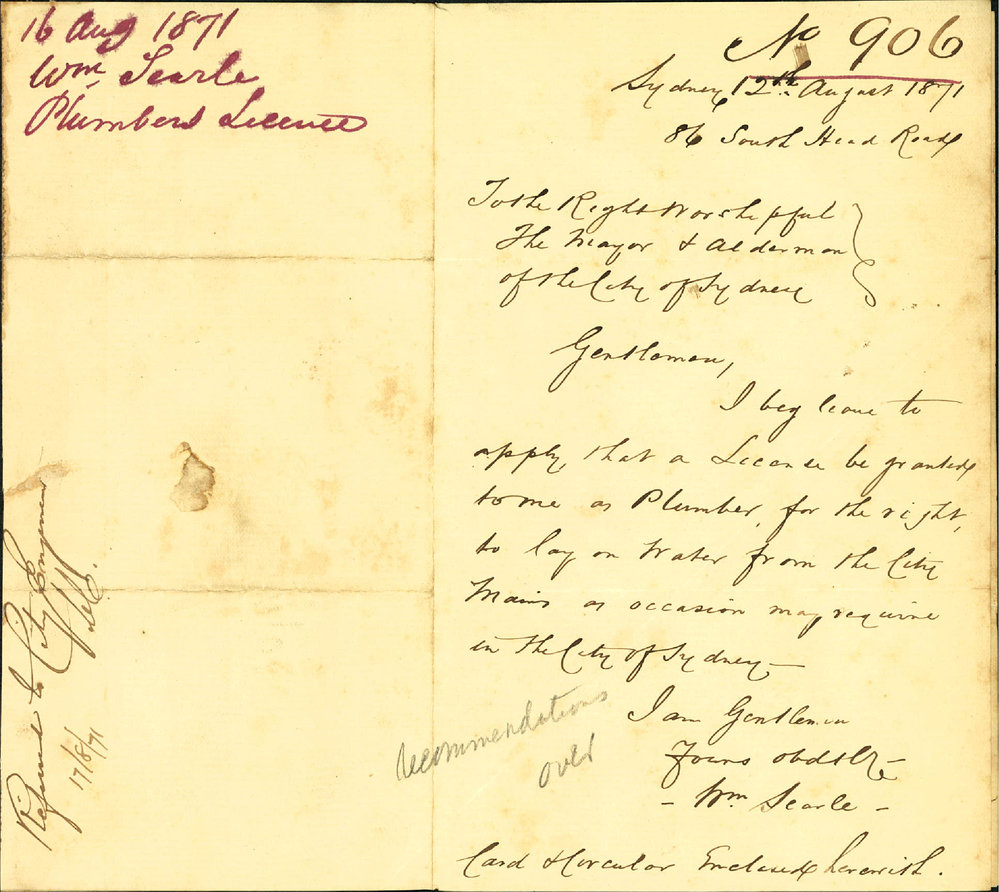 16 Aug 1871
Wm Searle
Plumbers License
Referred to City Engineer
17/8/71
No 906
Sydney 12th August 1871
86 South Head Road
To the Right Worshipful
The Mayor & Alderman
of the City of Sydney
Gentlemen,
I beg leave to
apply that a License be granted
to me as Plumber, for the right,
to lay on Water from the City
Mains as occasion may require
in the City of Sydney —
I am Gentlemen
Yours
- Wm Searle -
Card & Circular Enclosed herewith.
recommendations
over